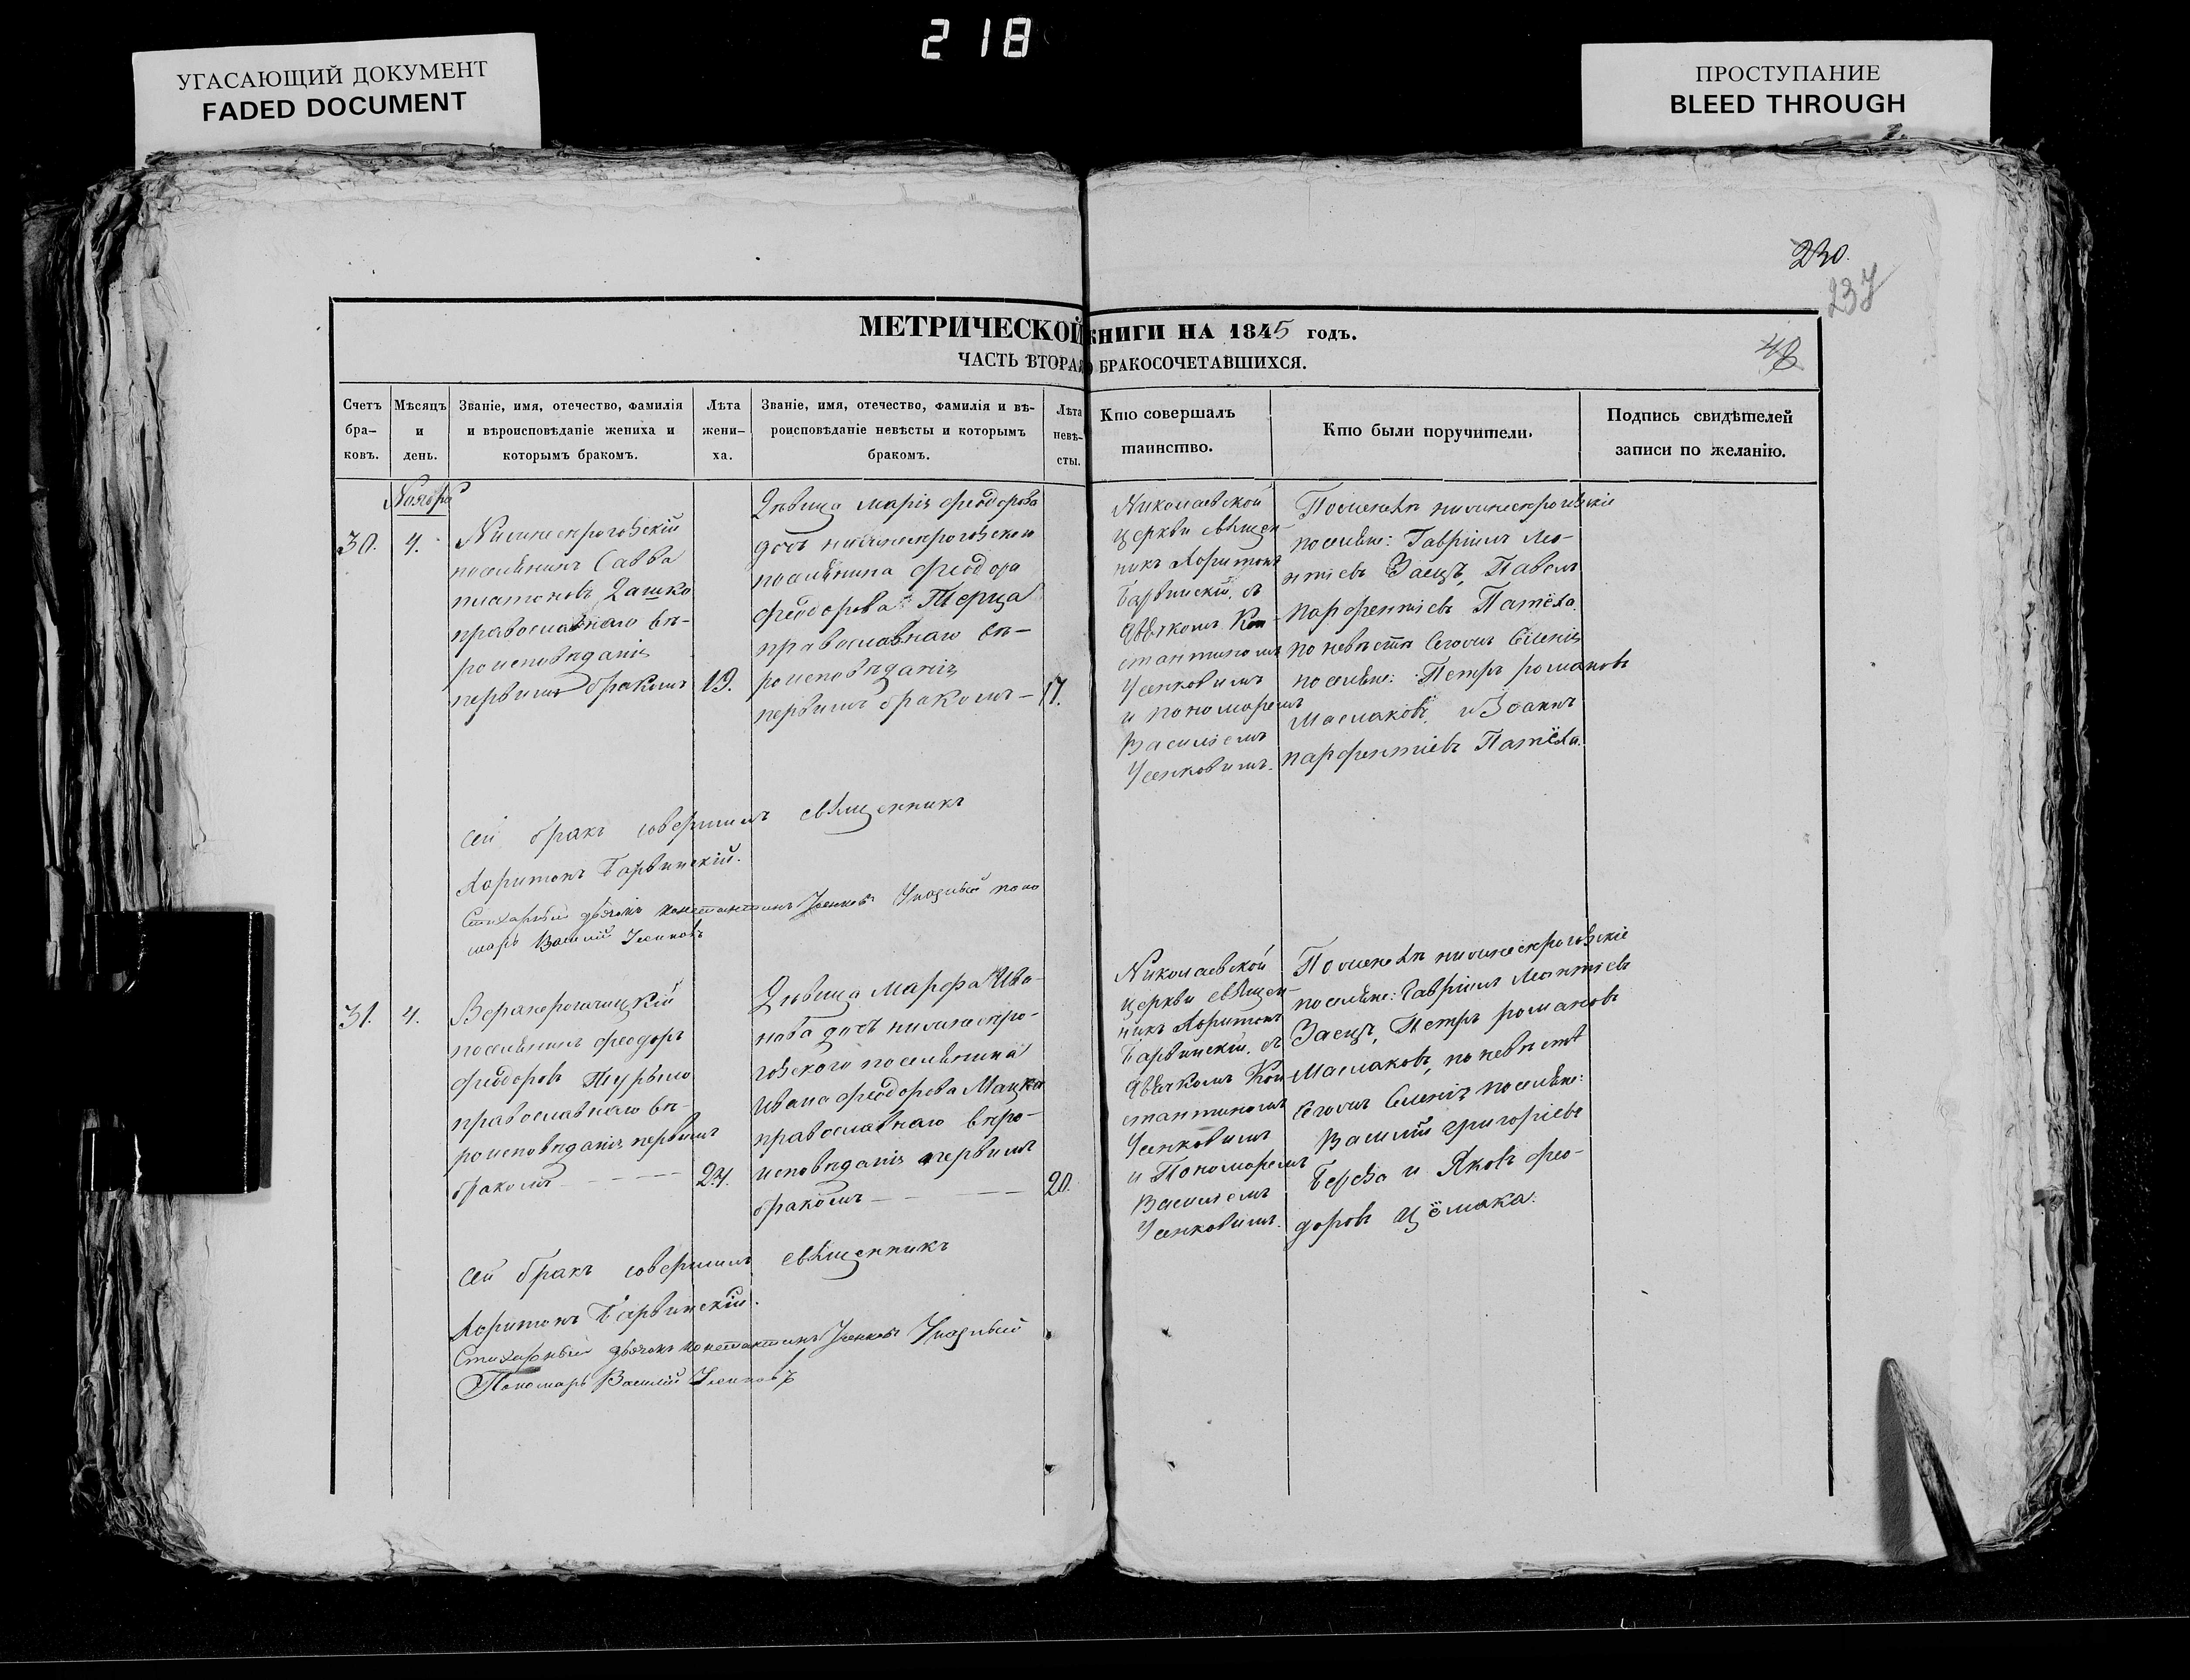 218
УГАСАЮЩИЙ ДОКУМЕНТ
FADED DOCUMENT
ПРОСТУПАНИЕ
BLEED THROUGH
230.
237
48
МЕТРИЧЕСКОЙ КНИГИ НА 1845 годъ.
ЧАСТЬ ВТОРАЯ О БРАКОСОЧЕТАВШИХСЯ.
Счетъ
бра-
ковъ.
Мѣсяцъ
и
день.
Званіе, имя, отечество, фамилія
и вѣроисповѣданіе жениха и
которымъ бракомъ.
Лѣта
жени-
ха.
Званіе, имя, отечество, фамилія и вѣ-
роисповѣданіе невѣсты и которымъ
бракомъ.
Лѣта
невѣ-
сты.
Кто совершалъ
таинство.
Кто были поручители.
Подпись свидѣтелей
записи по желанію.
Ноября
30.
4.
Нижнесрогозскій
поселянинъ Савва
платоновъ Дашко
православнаго вѣ-
роисповѣданія
первымъ бракомъ
19.
Дѣвица марія феодорова
дочь нижнесрогозскаго
поселянина феодора
феодорова Терца
православнаго вѣ-
роисповѣданія
первымъ бракомъ —
17.
Николаевской
церкви священ-
никъ Харитонъ
Барвинскій, съ
дьячкомъ Кон-
стантиномъ
Усенковымъ
и пономаремъ
Василіемъ
Усенковымъ.
По женихѣ нижнесрогозскіе
поселяне: Гавріилъ Лео-
нтіевъ Заецъ, Павелъ
парфентіевъ Патёха.
по невѣстѣ Сего жъ Селенія
поселяне: Петръ романовъ
Маслаковъ, и Іоаннъ
парфентіевъ Патёха.
Сей бракъ совершилъ священникъ
Харитонъ Барвинскій.
Стихарный дьячокъ константинъ Усенковъ Указный поно
марь Василій Усенковъ
31.
4.
Верхнерогачицкій
поселянинъ феодоръ
феодоровъ Турыло
православнаго вѣ-
роисповѣданія первымъ
бракомъ
24.
Дѣвица марфа Ива-
нова дочь нижнесро-
гозскаго поселянина
ивана феодорова Мацка
православнаго вѣро-
исповѣданія первымъ
бракомъ
20.
Николаевской
церкви священ-
никъ Харитонъ
Барвинскій, съ
дьячкомъ Кон
стантиномъ
Усенковымъ
и Пономаремъ
Василіемъ
Усенковымъ.
По женихѣ нижнесрогозскіе
поселяне: Гавріилъ Леонтіевъ
Заецъ, Петръ романовъ
Маслаковъ, по невѣстѣ
Сего жъ Селенія поселяне:
Василій григоріевъ
Берёза и Яковъ фео-
доровъ Цёмака.
Сей бракъ совершилъ священникъ
Харитонъ Барвинскій.
Стихарный дьячокъ константинъ Усенковъ Указный
Пономарь Василій Усенковъ